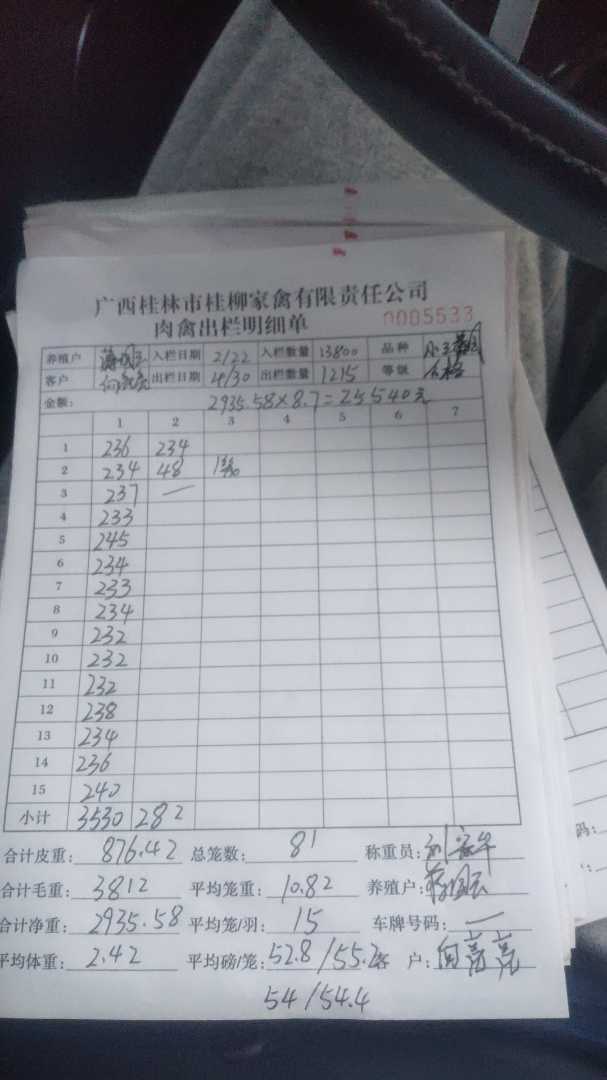 广西桂林市桂柳家禽有限责任公司
肉禽出栏明细单 0005533
养殖户 入栏日期 2/22 入栏数量 13800 品种
客户 出栏日期 4/30 出栏数量 1215 等级 合格
金额： 2935.58×8.7=25540元
1 2 3 4 5 6 7
1 236 234
2 234 48
3 237 —
4 233
5 245
6 234
7 233
8 234
9 232
10 232
11 232
12 238
13 234
14 236
15 240
小计 3530 282
合计皮重： 876.42 总笼数： 81 称重员：
合计毛重： 3812 平均笼重： 10.82 养殖户：
合计净重： 2935.58 平均笼/羽： 15 车牌号码： —
平均体重： 2.42 平均磅/笼： 52.8/55.2 客 户： 向亮亮
54/54.4
码：